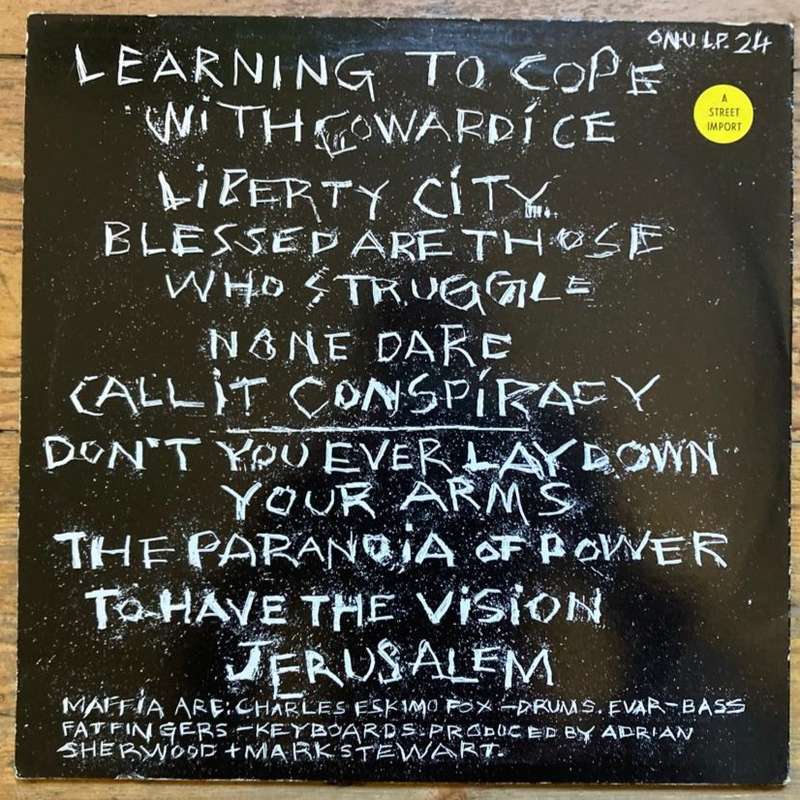 ON-U LP. 24
LEARNING TO COPE
WITH COWARDICE
A
STREET
IMPORT
LIBERTY CITY.
BLESSED ARE THOSE
WHO STRUGGLE
NONE DARE
CALL IT CONSPIRACY
DON'T YOU EVER LAY DOWN
YOUR ARMS
THE PARANOIA OF POWER
TO HAVE THE VISION
JERUSALEM
MAFFIA ARE: CHARLES ESKIMO FOX - DRUMS. EVAR - BASS
FATFINGERS - KEYBOARDS. PRODUCED BY ADRIAN
SHERWOOD + MARK STEWART.